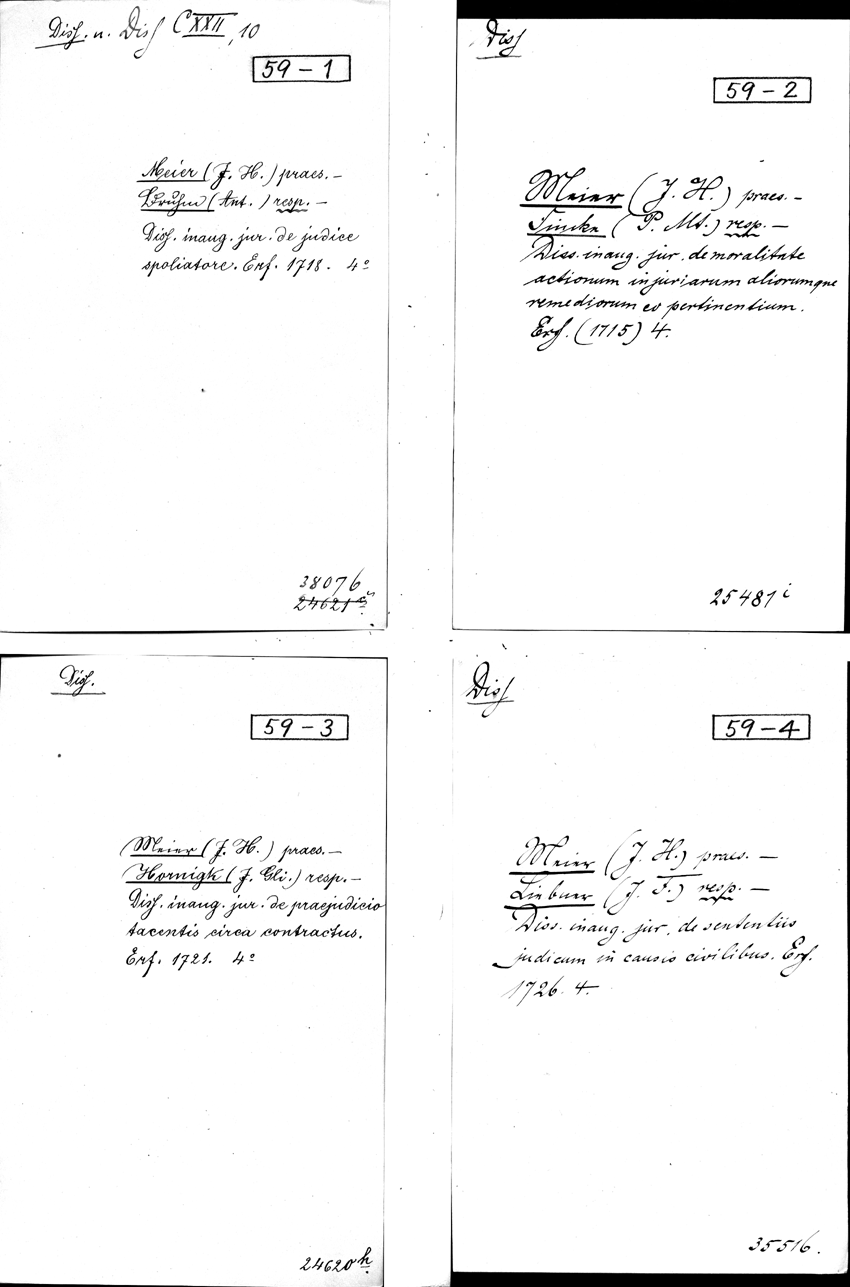 Diss. u. Diss CXXII, 10
59-1
Meier (J. H.) praes. —
Bruhm (Ant.) resp. —
Diss. inaug. jur. de judice
spoliatore. Erf. 1718. 4°
38076
24621
Diss
59-2
Meier (J. H.) praes. —
Fincke (P. Mt.) resp. —
Diss. inaug. jur. de moralitate
actionum injuriarum aliorumque
remediorum eo pertinentium.
Erf. (1715) 4.
25481 i
Diss.
59-3
Meier (J. H.) praes. —
Hornigk (J. Gli.) resp. —
Diss. inaug. jur. de praejudicio
tacentis circa contractus.
Erf. 1721. 4°
24620 h.
Diss
59-4
Meier (J. H.) praes. —
Liebner (J. F.) resp. —
Diss. inaug. jur. de sententiis
judicum in causis civilibus. Erf.
1726. 4.
35516.